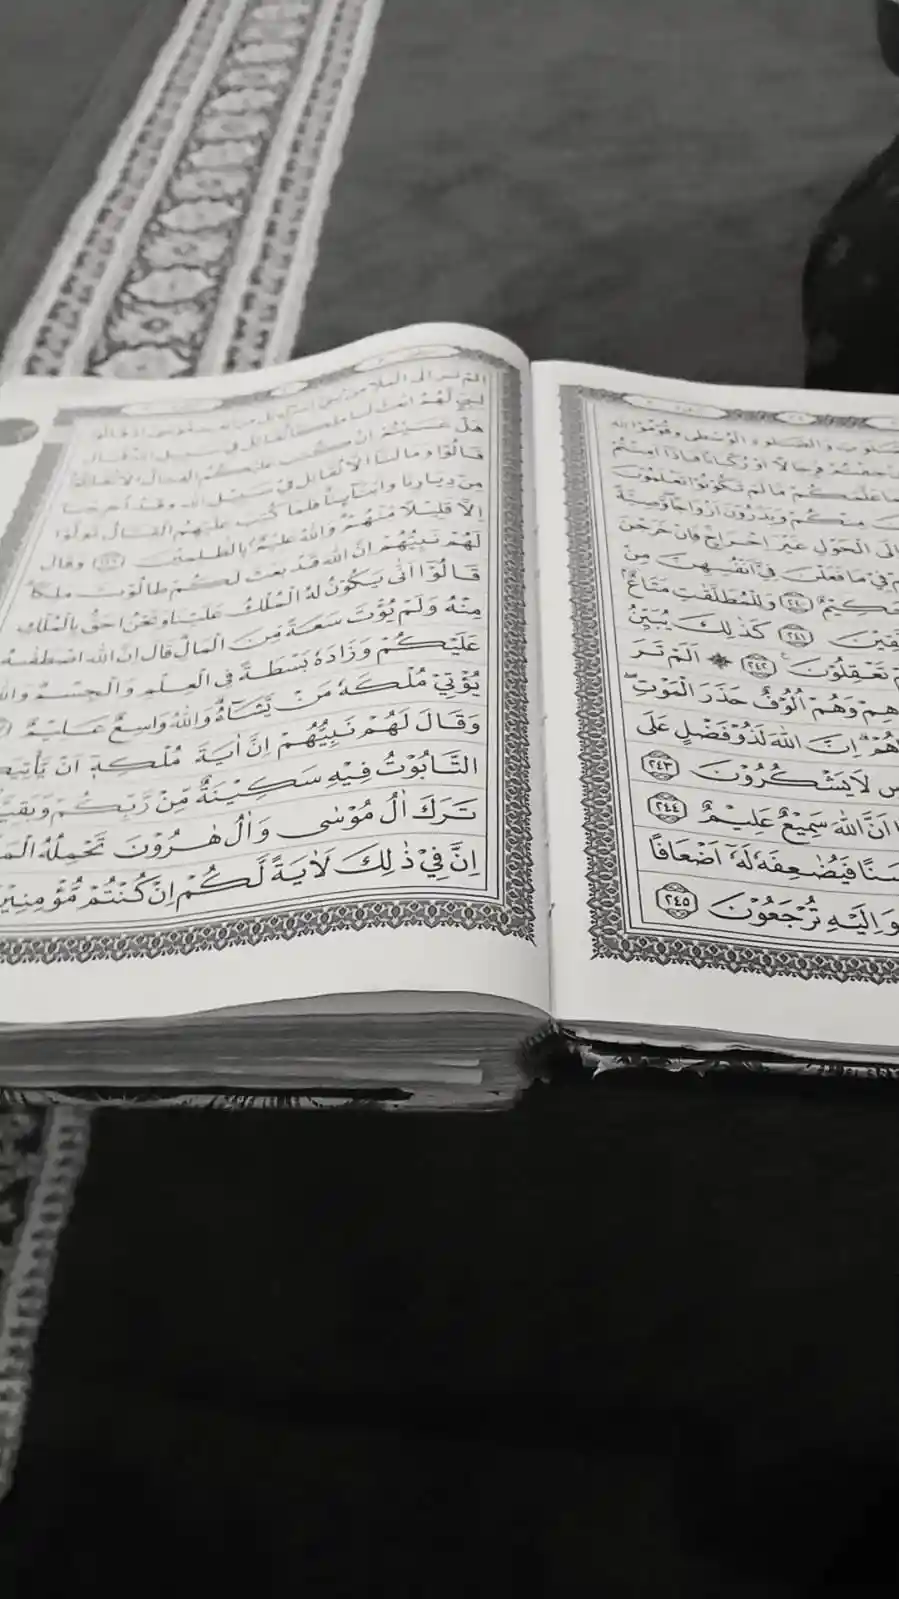 وَالصَّلٰوةِ الْوُسْطٰى وَقُوْمُوْا لِلّٰهِ
خِفْتُمْ فَرِجَالًا اَوْ رُكْبَانًا فَاِذَآ اَمِنْتُمْ
عَلَّمَكُمْ مَّا لَمْ تَكُوْنُوْا تَعْلَمُوْنَ
مِنْكُمْ وَيَذَرُوْنَ اَزْوَاجًا وَّصِيَّةً
اِلَى الْحَوْلِ غَيْرَ اِخْرَاجٍ فَاِنْ خَرَجْنَ
فِيْ مَا فَعَلْنَ فِيْٓ اَنْفُسِهِنَّ مِنْ
حَكِيْمٌ ٢٤٠ وَلِلْمُطَلَّقٰتِ مَتَاعٌ
٢٤١ كَذٰلِكَ يُبَيِّنُ
تَعْقِلُوْنَ ٢٤٢ اَلَمْ تَرَ
وَهُمْ اُلُوْفٌ حَذَرَ الْمَوْتِ
اِنَّ اللّٰهَ لَذُوْ فَضْلٍ عَلَى
لَا يَشْكُرُوْنَ ٢٤٣
اَنَّ اللّٰهَ سَمِيْعٌ عَلِيْمٌ ٢٤٤
فَيُضٰعِفَهٗ لَهٗٓ اَضْعَافًا
وَاِلَيْهِ تُرْجَعُوْنَ ٢٤٥
اَلَمْ تَرَ اِلَى الْمَلَاِ مِنْ
لِنَبِيٍّ لَّهُمُ ابْعَثْ لَنَا مَلِكًا نُّقَاتِلْ فِيْ سَبِيْلِ اللّٰهِ قَالَ
هَلْ عَسَيْتُمْ اِنْ كُتِبَ عَلَيْكُمُ الْقِتَالُ اَلَّا تُقَاتِلُوْا
قَالُوْا وَمَا لَنَآ اَلَّا نُقَاتِلَ فِيْ سَبِيْلِ اللّٰهِ وَقَدْ اُخْرِجْنَا
مِنْ دِيَارِنَا وَاَبْنَآئِنَا فَلَمَّا كُتِبَ عَلَيْهِمُ الْقِتَالُ تَوَلَّوْا
اِلَّا قَلِيْلًا مِّنْهُمْ وَاللّٰهُ عَلِيْمٌۢ بِالظّٰلِمِيْنَ ٢٤٦ وَقَالَ
لَهُمْ نَبِيُّهُمْ اِنَّ اللّٰهَ قَدْ بَعَثَ لَكُمْ طَالُوْتَ مَلِكًا
قَالُوْٓا اَنّٰى يَكُوْنُ لَهُ الْمُلْكُ عَلَيْنَا وَنَحْنُ اَحَقُّ بِالْمُلْكِ
مِنْهُ وَلَمْ يُؤْتَ سَعَةً مِّنَ الْمَالِ قَالَ اِنَّ اللّٰهَ اصْطَفٰىهُ
عَلَيْكُمْ وَزَادَهٗ بَسْطَةً فِى الْعِلْمِ وَالْجِسْمِ وَاللّٰهُ
يُؤْتِيْ مُلْكَهٗ مَنْ يَّشَآءُ وَاللّٰهُ وَاسِعٌ عَلِيْمٌ
وَقَالَ لَهُمْ نَبِيُّهُمْ اِنَّ اٰيَةَ مُلْكِهٖٓ اَنْ يَّأْتِيَكُمُ
التَّابُوْتُ فِيْهِ سَكِيْنَةٌ مِّنْ رَّبِّكُمْ وَبَقِيَّةٌ
تَرَكَ اٰلُ مُوْسٰى وَاٰلُ هٰرُوْنَ تَحْمِلُهُ
اِنَّ فِيْ ذٰلِكَ لَاٰيَةً لَّكُمْ اِنْ كُنْتُمْ مُّؤْمِنِيْنَ